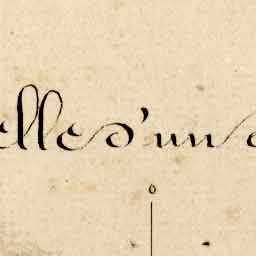 elle d'un